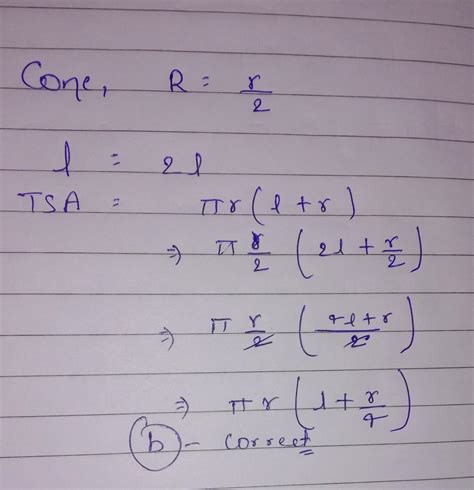 Cone, R = r/2
l = 2l
TSA = πr(l+r)
⇒ π r/2 (2l + r/2)
⇒ π r/2 (4l+r/2)
⇒ πr(l + r/4)
(b) - correct